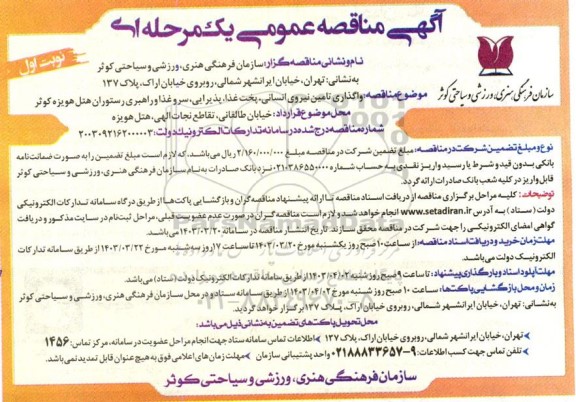 آگهی مناقصه عمومی یک مرحله ای
نوبت اول
سازمان فرهنگی، هنری، ورزشی و سیاحتی کوثر
نام و نشانی مناقصه گزار: سازمان فرهنگی هنری، ورزشی و سیاحتی کوثر
به نشانی: تهران، خیابان ایرانشهر شمالی، روبروی خیابان اراک، پلاک ۱۳۷
موضوع مناقصه: واگذاری تامین نیروی انسانی، پخت غذا، پذیرایی، سرو غذا و راهبری رستوران هتل هویزه کوثر
محل موضوع قرارداد: خیابان طالقانی، تقاطع نجات الهی، هتل هویزه
شماره مناقصه درج شده در سامانه تدارکات الکترونیک دولت: ۲۰۰۳۰۹۲۱۶۲۰۰۰۰۰۳
نوع و مبلغ تضمین شرکت در مناقصه: مبلغ تضمین شرکت در مناقصه مبلغ ۲/۱۶۰/۰۰۰/۰۰۰ ریال می باشد، که لازم است مبلغ تضمین را به صورت ضمانت نامه
بانکی بدون قید و شرط یا رسید واریز نقدی به حساب شماره ۰۲۱۰۳۸۶۵۵۰۰۰۰ نزد بانک صادرات به نام سازمان فرهنگی هنری، ورزشی و سیاحتی کوثر
قابل واریز در کلیه شعب بانک صادرات ارائه گردد.
توضیحات: کلیه مراحل برگزاری مناقصه از دریافت اسناد مناقصه تا ارائه پیشنهاد مناقصه گران و بازگشایی پاکت ها از طریق درگاه سامانه تدارکات الکترونیکی
دولت (ستاد) به آدرس www.setadiran.ir انجام خواهد شد و لازم است مناقصه گران در صورت عدم عضویت قبلی، مراحل ثبت نام در سایت مذکور و دریافت
گواهی امضای الکترونیکی را جهت شرکت در مناقصه محقق سازند. تاریخ انتشار مناقصه در سامانه ۱۴۰۳/۰۳/۲۰ می باشد.
مهلت زمان خرید و دریافت اسناد مناقصه: از ساعت ۱۰ صبح روز یکشنبه مورخ ۱۴۰۳/۰۳/۲۰ تا ساعت ۱۷ روز سه شنبه مورخ ۱۴۰۳/۰۳/۲۲ از طریق سامانه تدارکات
الکترونیک دولت می باشد.
مهلت آپلود اسناد و بارگذاری پیشنهاد: تا ساعت ۹ صبح روز شنبه مورخ ۱۴۰۳/۰۴/۰۲ از طریق سامانه تدارکات الکترونیک دولت (ستاد) می باشد.
زمان و محل بازگشایی پاکت ها: ساعت ۱۰ صبح روز شنبه مورخ ۱۴۰۳/۰۴/۰۲ از طریق سامانه ستاد و در محل سازمان فرهنگی هنری، ورزشی و سیاحتی کوثر
به نشانی: تهران، خیابان ایرانشهر شمالی، روبروی خیابان اراک، پلاک ۱۳۷ برگزار خواهد گردید.
محل تحویل پاکت های تضمین به نشانی ذیل می باشد:
تهران، خیابان ایرانشهر شمالی، روبروی خیابان اراک، پلاک ۱۳۷ اطلاعات تماس سامانه ستاد جهت انجام مراحل عضویت در سامانه، مرکز تماس: ۱۴۵۶
تلفن تماس جهت کسب اطلاعات: ۹-۰۲۱۸۸۸۳۳۶۵۷ واحد پشتیبانی سازمان مهلت زمان های اعلامی فوق به هیچ عنوان قابل تمدید نمی باشد.
سازمان فرهنگی هنری، ورزشی و سیاحتی کوثر